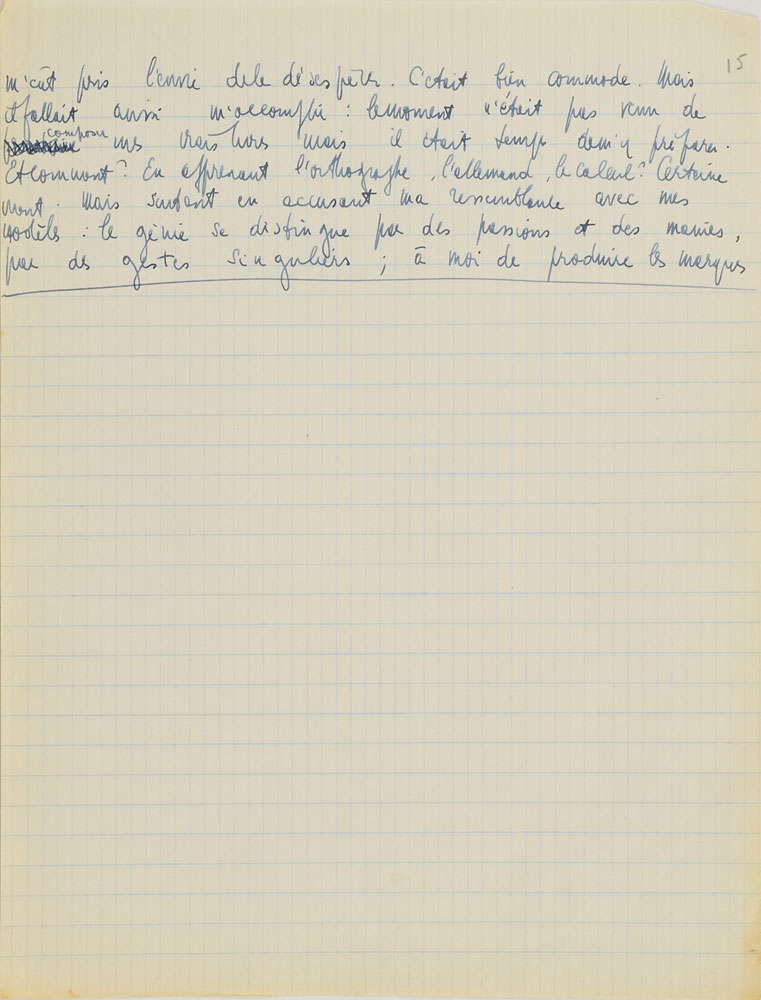 15
m'eût pris l'envie de le désespérer. C'était bien commode. Mais
il fallait aussi m'accomplir : le moment n'était pas venu de
composer
mes vrais livres mais il était temps de m'y préparer.
Et comment ? En apprenant l'orthographe, l'allemand, le calcul ? Certaine
ment. Mais surtout en accusant ma ressemblance avec mes
modèles : le génie se distingue par des passions et des manies,
par des gestes singuliers ; à moi de produire les marques